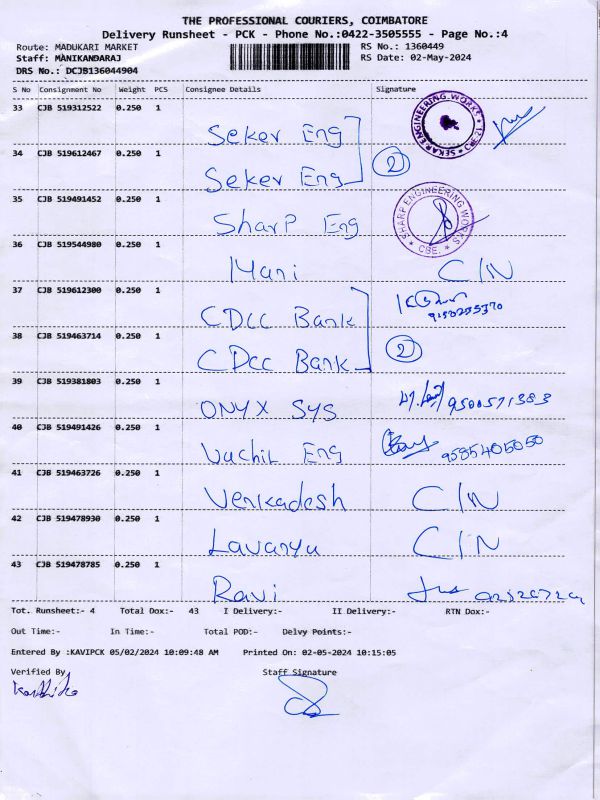 THE PROFESSIONAL COURIERS, COIMBATORE
Delivery Runsheet - PCK - Phone No.:0422-3505555 - Page No.:4
Route: MADUKARI MARKET RS No.: 1360449
Staff: MANIKANDARAJ RS Date: 02-May-2024
DRS No.: DCJB136044904
S No Consignment No Weight PCS Consignee Details Signature
33 CJB 519312522 0.250 1
Seker Eng
SEKAR ENGINEERING WORKS
34 CJB 519612467 0.250 1
Seker Eng 2
35 CJB 519491452 0.250 1
Sharp Eng
SHARP ENGINEERING WORKS CBE.
36 CJB 519544980 0.250 1
Mani C/N
37 CJB 519612300 0.250 1
CDCC Bank
38 CJB 519463714 0.250 1
CDCC Bank 2
39 CJB 519381803 0.250 1
ONYX SYS 9500571383
40 CJB 519491426 0.250 1
Vachil Eng 9585405050
41 CJB 519463726 0.250 1
Venkadesh C/N
42 CJB 519478930 0.250 1
Lavanya C/N
43 CJB 519478785 0.250 1
Ravi
Tot. Runsheet:- 4 Total Dox:- 43 I Delivery:- II Delivery:- RTN Dox:-
Out Time:- In Time:- Total POD:- Delvy Points:-
Entered By :KAVIPCK 05/02/2024 10:09:48 AM Printed On: 02-05-2024 10:15:05
Verified By Staff Signature